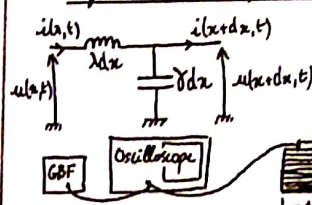 i(x,t) i(x+dx,t)
λdx
u(x,t) γdx u(x+dx,t)
GBF Oscilloscope